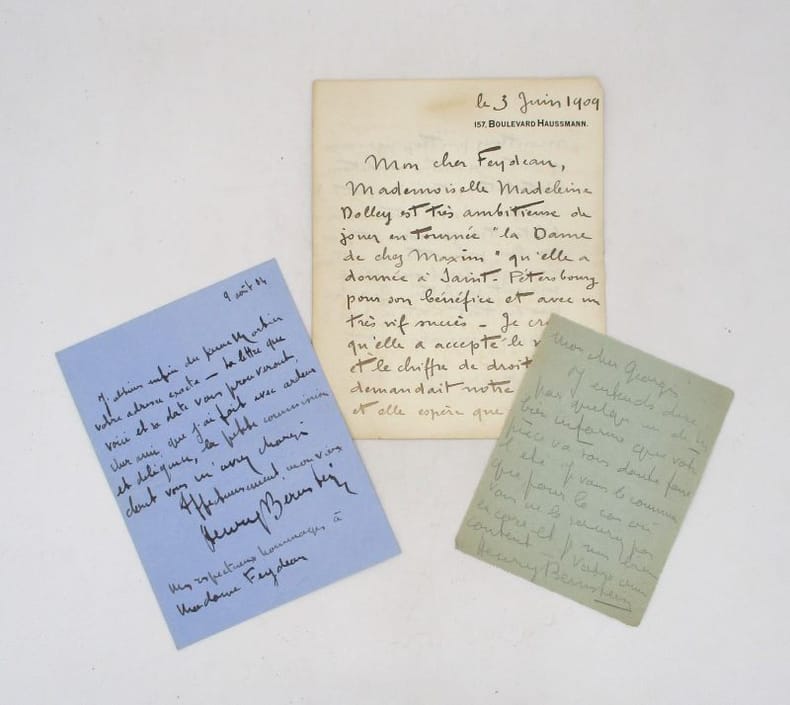 le 3 Juin 1909
157, BOULEVARD HAUSSMANN.
Mon cher Feydeau,
Mademoiselle Madeleine
Dolley est très ambitieuse de
jouer en tournée "la Dame
de chez Maxim" qu'elle a
donnée à Saint-Pétersbourg
pour son bénéfice et avec un
très vif succès - Je
qu'elle a accepté le
et le chiffre de droit
demandait notre
et elle espère que
9 août 04
J'obtiens enfin du jeune
votre adresse exacte - La lettre que
voici et sa date vous prouveront,
cher ami, que j'ai fait avec ardeur
et délicatesse, la petite commission
dont vous m'avez chargé
Affectueusement, mon vieux
Henry Bernstein
Mes respectueux hommages à
Madame Feydeau
Mon cher Georges
J'entends dire
par quelqu'un de très
bien informé que votre
pièce va sans doute faire
l'été. Je vous le
que pour le cas où
vous ne le sauriez pas
encore et j'en suis bien
content - Votre ami
Henry Bernstein